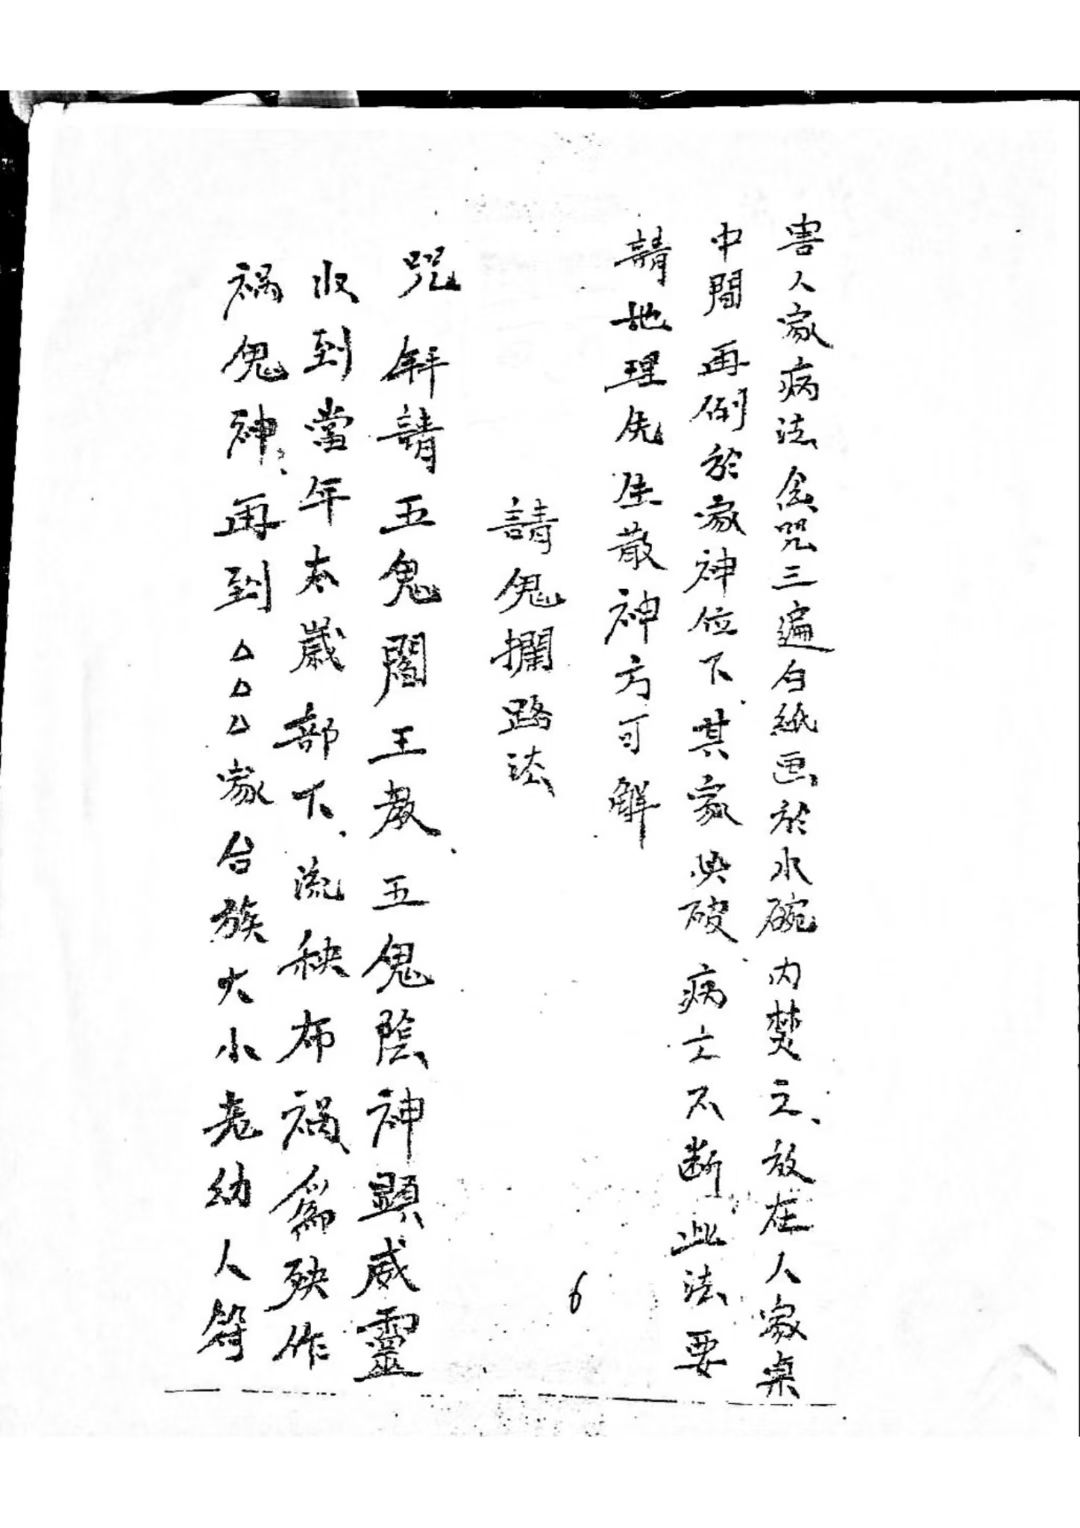 害人家病法念咒三遍白紙画於水碗内焚之、放在人家桌
中間再倒於家神位下、其家興破、病亡不断、此法要
請地理先生散神方可解
請鬼攔路法
咒 請五鬼閻王教、五鬼陰神顕威靈
收到當年太歳部下、流秧布禍為殃作
禍鬼神、再到△△△家台族大小老幼人
6